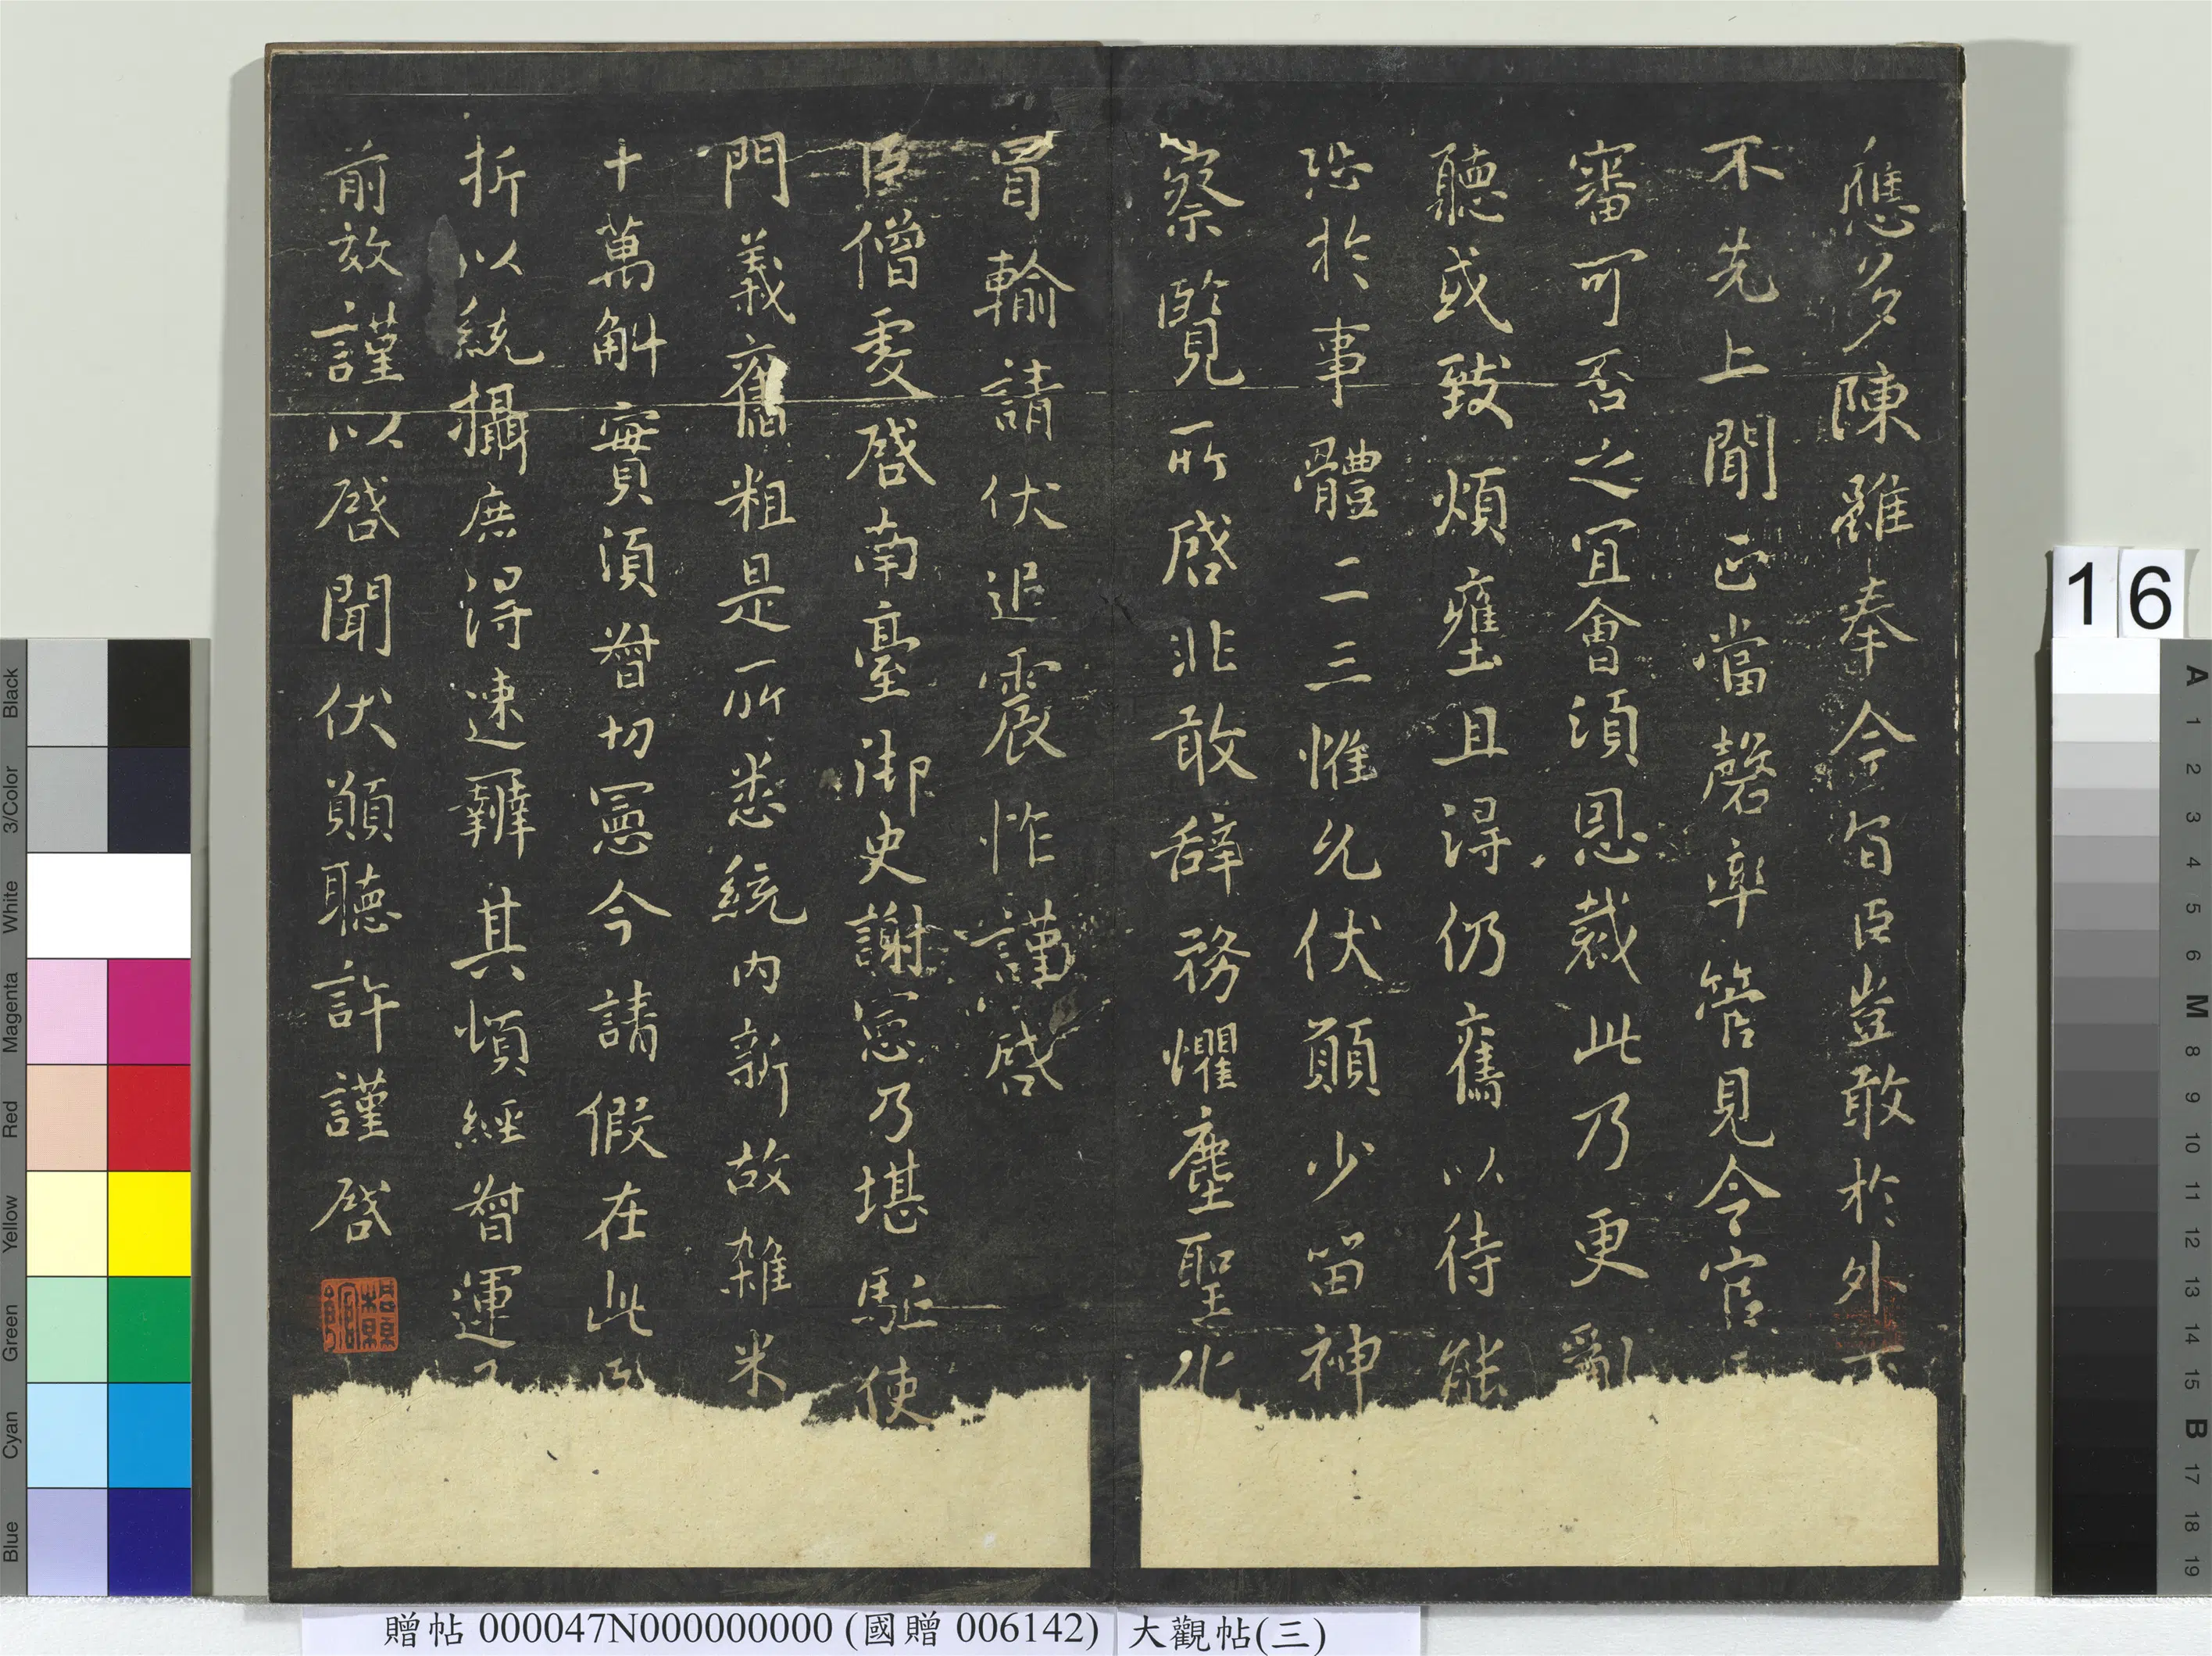 應多陳雖奉今旨臣豈敢於外
不先上聞正當罄率管見今官
審可否之宜會須恩裁此乃更亂
聽或致煩壅且得仍舊以待能
恐於事體二三惟允伏願少留神
察覽所啓非敢辞務懼塵聖
冒輸請伏追震怍謹啓
臣僧虔啓南臺御史謝憲乃堪駈使
門義舊粗是所悉統内新故雜米
十萬斛實須督切憲今請假在此
折以統攝庶得速辦其煩經督運
前效謹以啓聞伏願聽許謹啓
16
Black
3/Color
White
Magenta
Red
Yellow
Green
Cyan
Blue
A 1 2 3 4 5 6 M 8 9 10 11 12 13 14 15 B 17 18 19
贈帖 000047N000000000 (國贈 006142) 大觀帖(三)